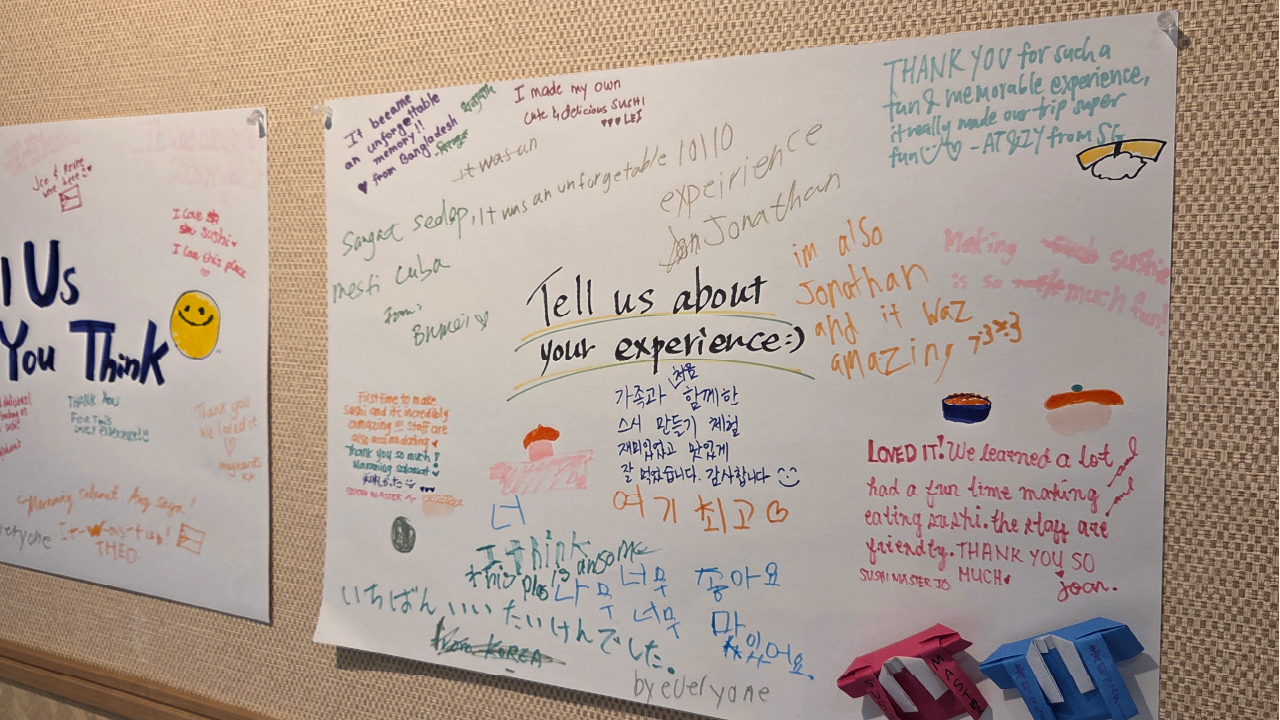 Joe &
were here
I love
su sushi
I love this place
l Us
You Think
THANK YOU
FOR THIS
Thank you
we loved it
Maraming salamat
eryone
It-was-fun!
THEO
It became
an unforgettable
memory!!
from Bangladesh
I made my own
cute & delicious SUSHI
LEI
THANK YOU for such a
fun & memorable experience,
it really made our trip super
fun - AT&ZY from SG
It was an
Sangat sedap, It was an unforgetable 10110
expeirience
Jonathan
mesti cuba
from:
Brunei
im also
Jonathan
and it waz
amazing
Making sushi
is so much fun!
Tell us about
your experience:)
처음
가족과 함께한
스시 만들기 체험
재미있었고 맛있게
잘 먹었습니다. 감사합니다
여기 최고
First time to make
Sushi and it's incredibly
amazing !!! Staff are
also accomodating
Thank you so much!
Maraming salamat
SUSHI MASTER
LOVED IT! We learned a lot
and
had a fun time making
and
eating sushi. the staff are
friendly. THANK YOU SO
MUCH
SUSHI MASTER JO
joan.
너
I think
this plas is ansome
너무 좋아요
나무 너무 맛
있어요.
いちばん いい たいけんでした。
from KOREA
by everyone
SUSHI
MASTER